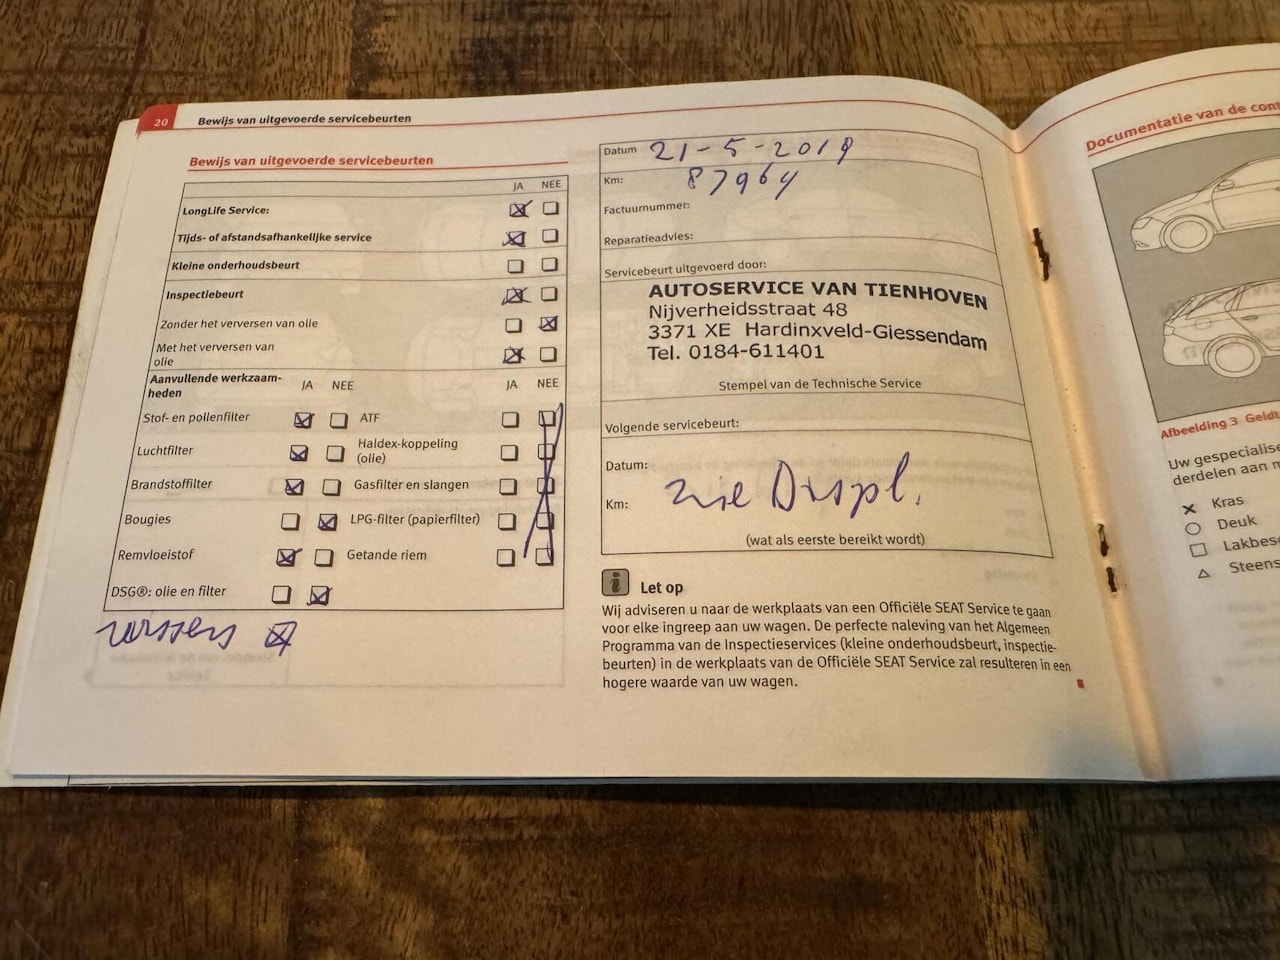 20 Bewijs van uitgevoerde servicebeurten
Bewijs van uitgevoerde servicebeurten
JA NEE
LongLife Service:
Tijds- of afstandsafhankelijke service
Kleine onderhoudsbeurt
Inspectiebeurt
Zonder het verversen van olie
Met het verversen van
olie
Aanvullende werkzaam-
heden
JA NEE JA NEE
Stof- en pollenfilter ATF
Luchtfilter Haldex-koppeling
(olie)
Brandstoffilter Gasfilter en slangen
Bougies LPG-filter (papierfilter)
Remvloeistof Getande riem
DSG®: olie en filter
Datum 21-5-2019
Km: 87964
Factuurnummer:
Reparatieadvies:
Servicebeurt uitgevoerd door:
AUTOSERVICE VAN TIENHOVEN
Nijverheidsstraat 48
3371 XE Hardinxveld-Giessendam
Tel. 0184-611401
Stempel van de Technische Service
Volgende servicebeurt:
Datum:
Km: zie Displ.
(wat als eerste bereikt wordt)
i Let op
Wij adviseren u naar de werkplaats van een Officiële SEAT Service te gaan
voor elke ingreep aan uw wagen. De perfecte naleving van het Algemeen
Programma van de Inspectieservices (kleine onderhoudsbeurt, inspectie-
beurten) in de werkplaats van de Officiële SEAT Service zal resulteren in een
hogere waarde van uw wagen.
Documentatie van de
Afbeelding 3
Uw
derdelen aan
Kras
Deuk